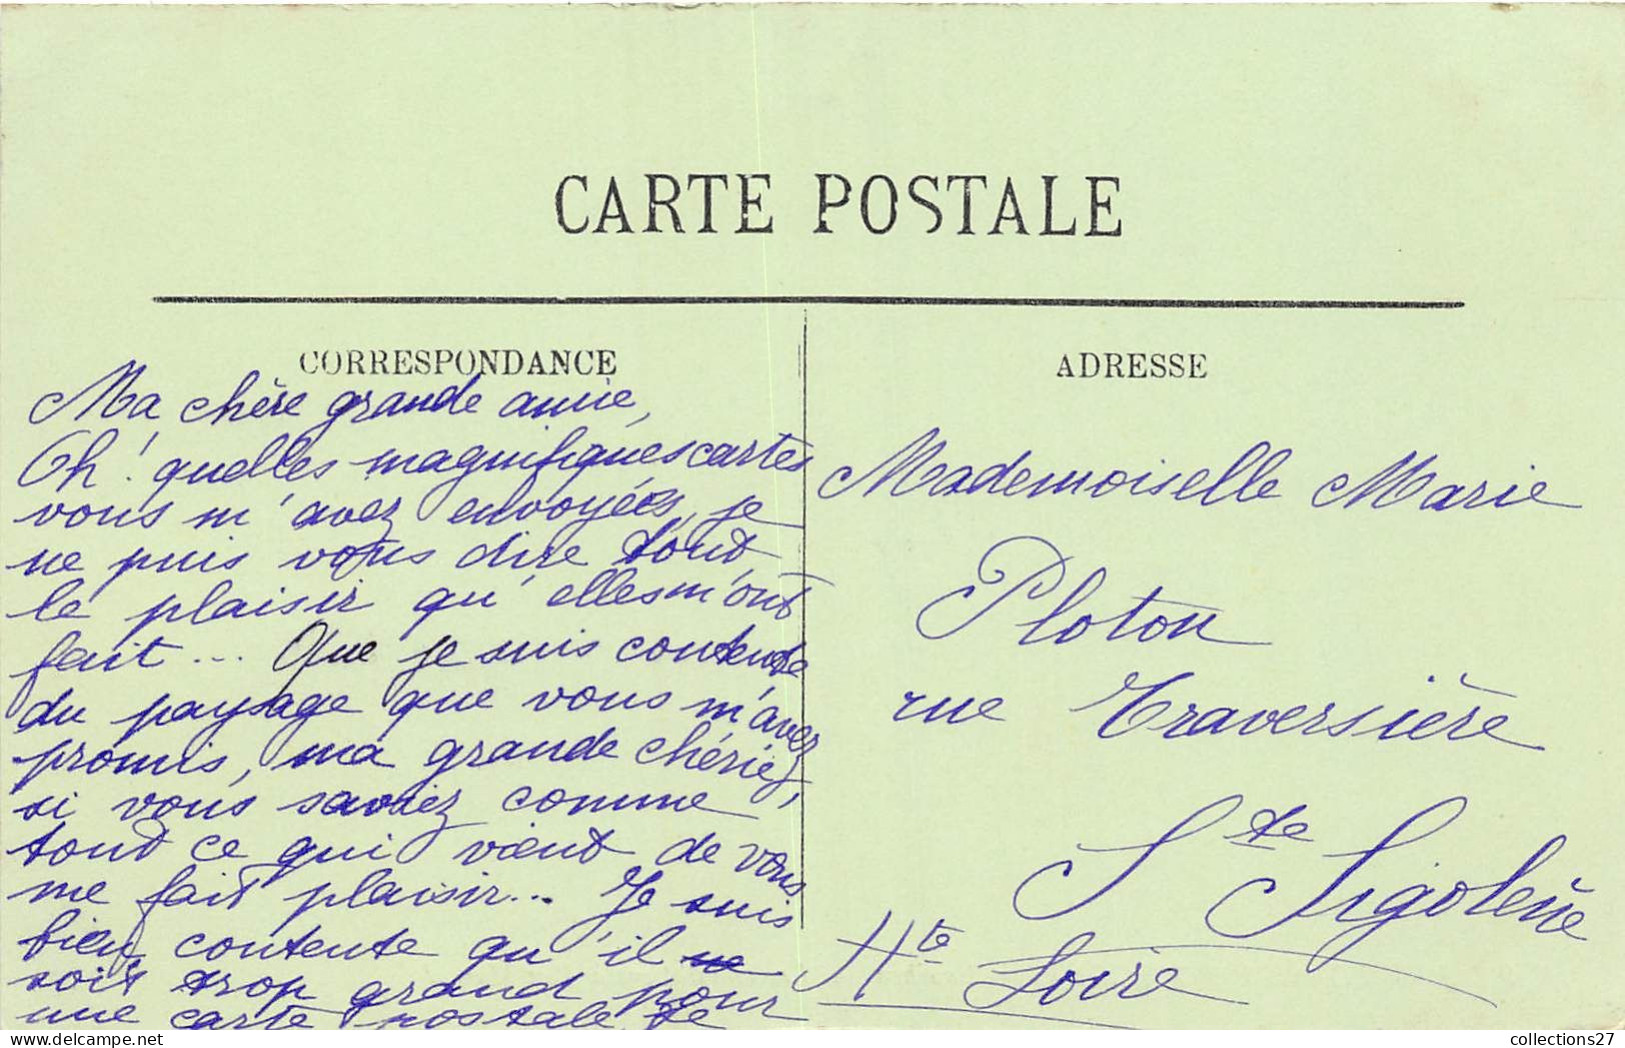 CARTE POSTALE
CORRESPONDANCE
Ma chère grande amie,
Oh! quelles magnifiques cartes
vous m'avez envoyées, je
ne puis vous dire tout
le plaisir qu'elles m'ont
fait... Que je suis contente
du paysage que vous m'avez
promis, ma grande chériez,
si vous saviez comme
tout ce qui vient de vous
me fait plaisir... Je suis
bien contente qu'il ne
soit trop grand pour
une carte postale, je
ADRESSE
Mademoiselle Marie
Ploton
rue Traversière
Ste Sigolène
Hte Loire
collections27